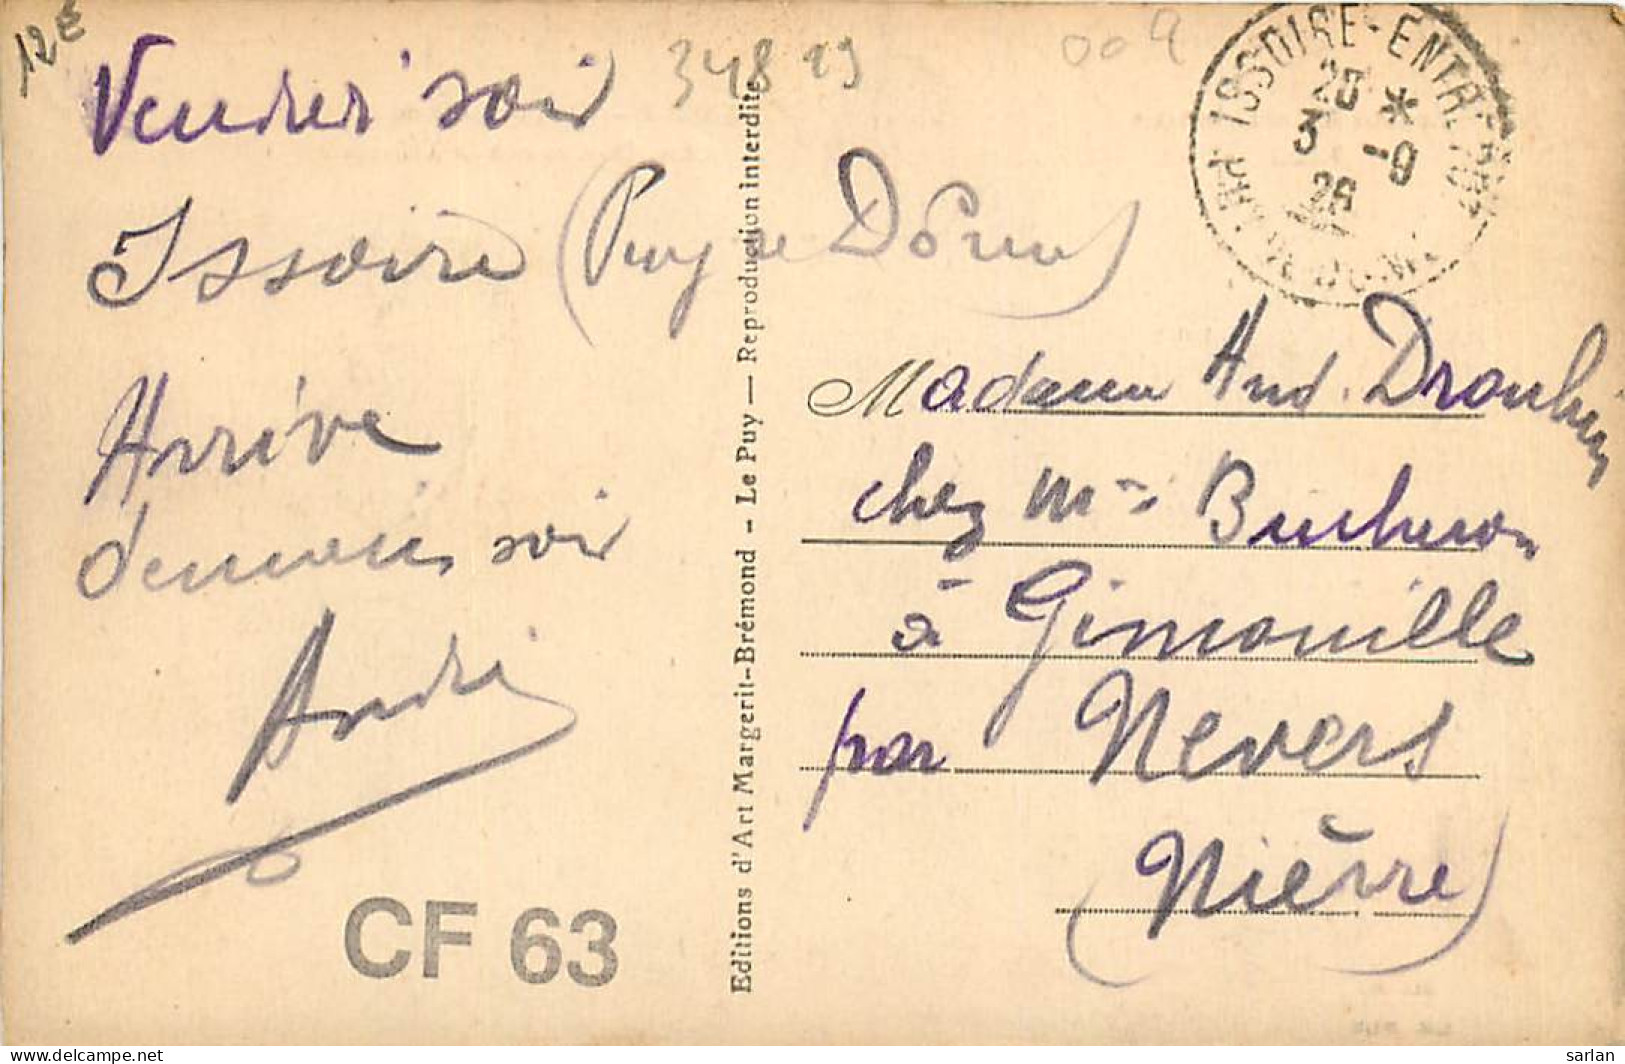 12€
34819
009
Vendredi soir
Issoire (Puy de Dôme)
Arrive
demain soir
André
CF 63
Editions d'Art Margerit-Brémond - Le Puy — Reproduction interdite
ISSOIRE-ENTREPOT
20 *
3 -9
26
PUY-DE-DOME
Madame And. Drouhin
chez Mme Bucheron
à Gimouille
par Nevers
(Nièvre)
sarlan